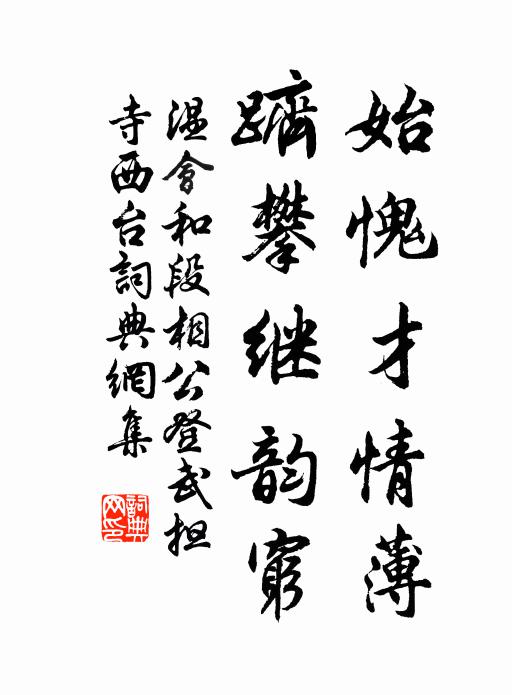 始愧才情薄
躋攀继韵窮
温會和段相公登武担
寺西台詞典網集
詞典网印